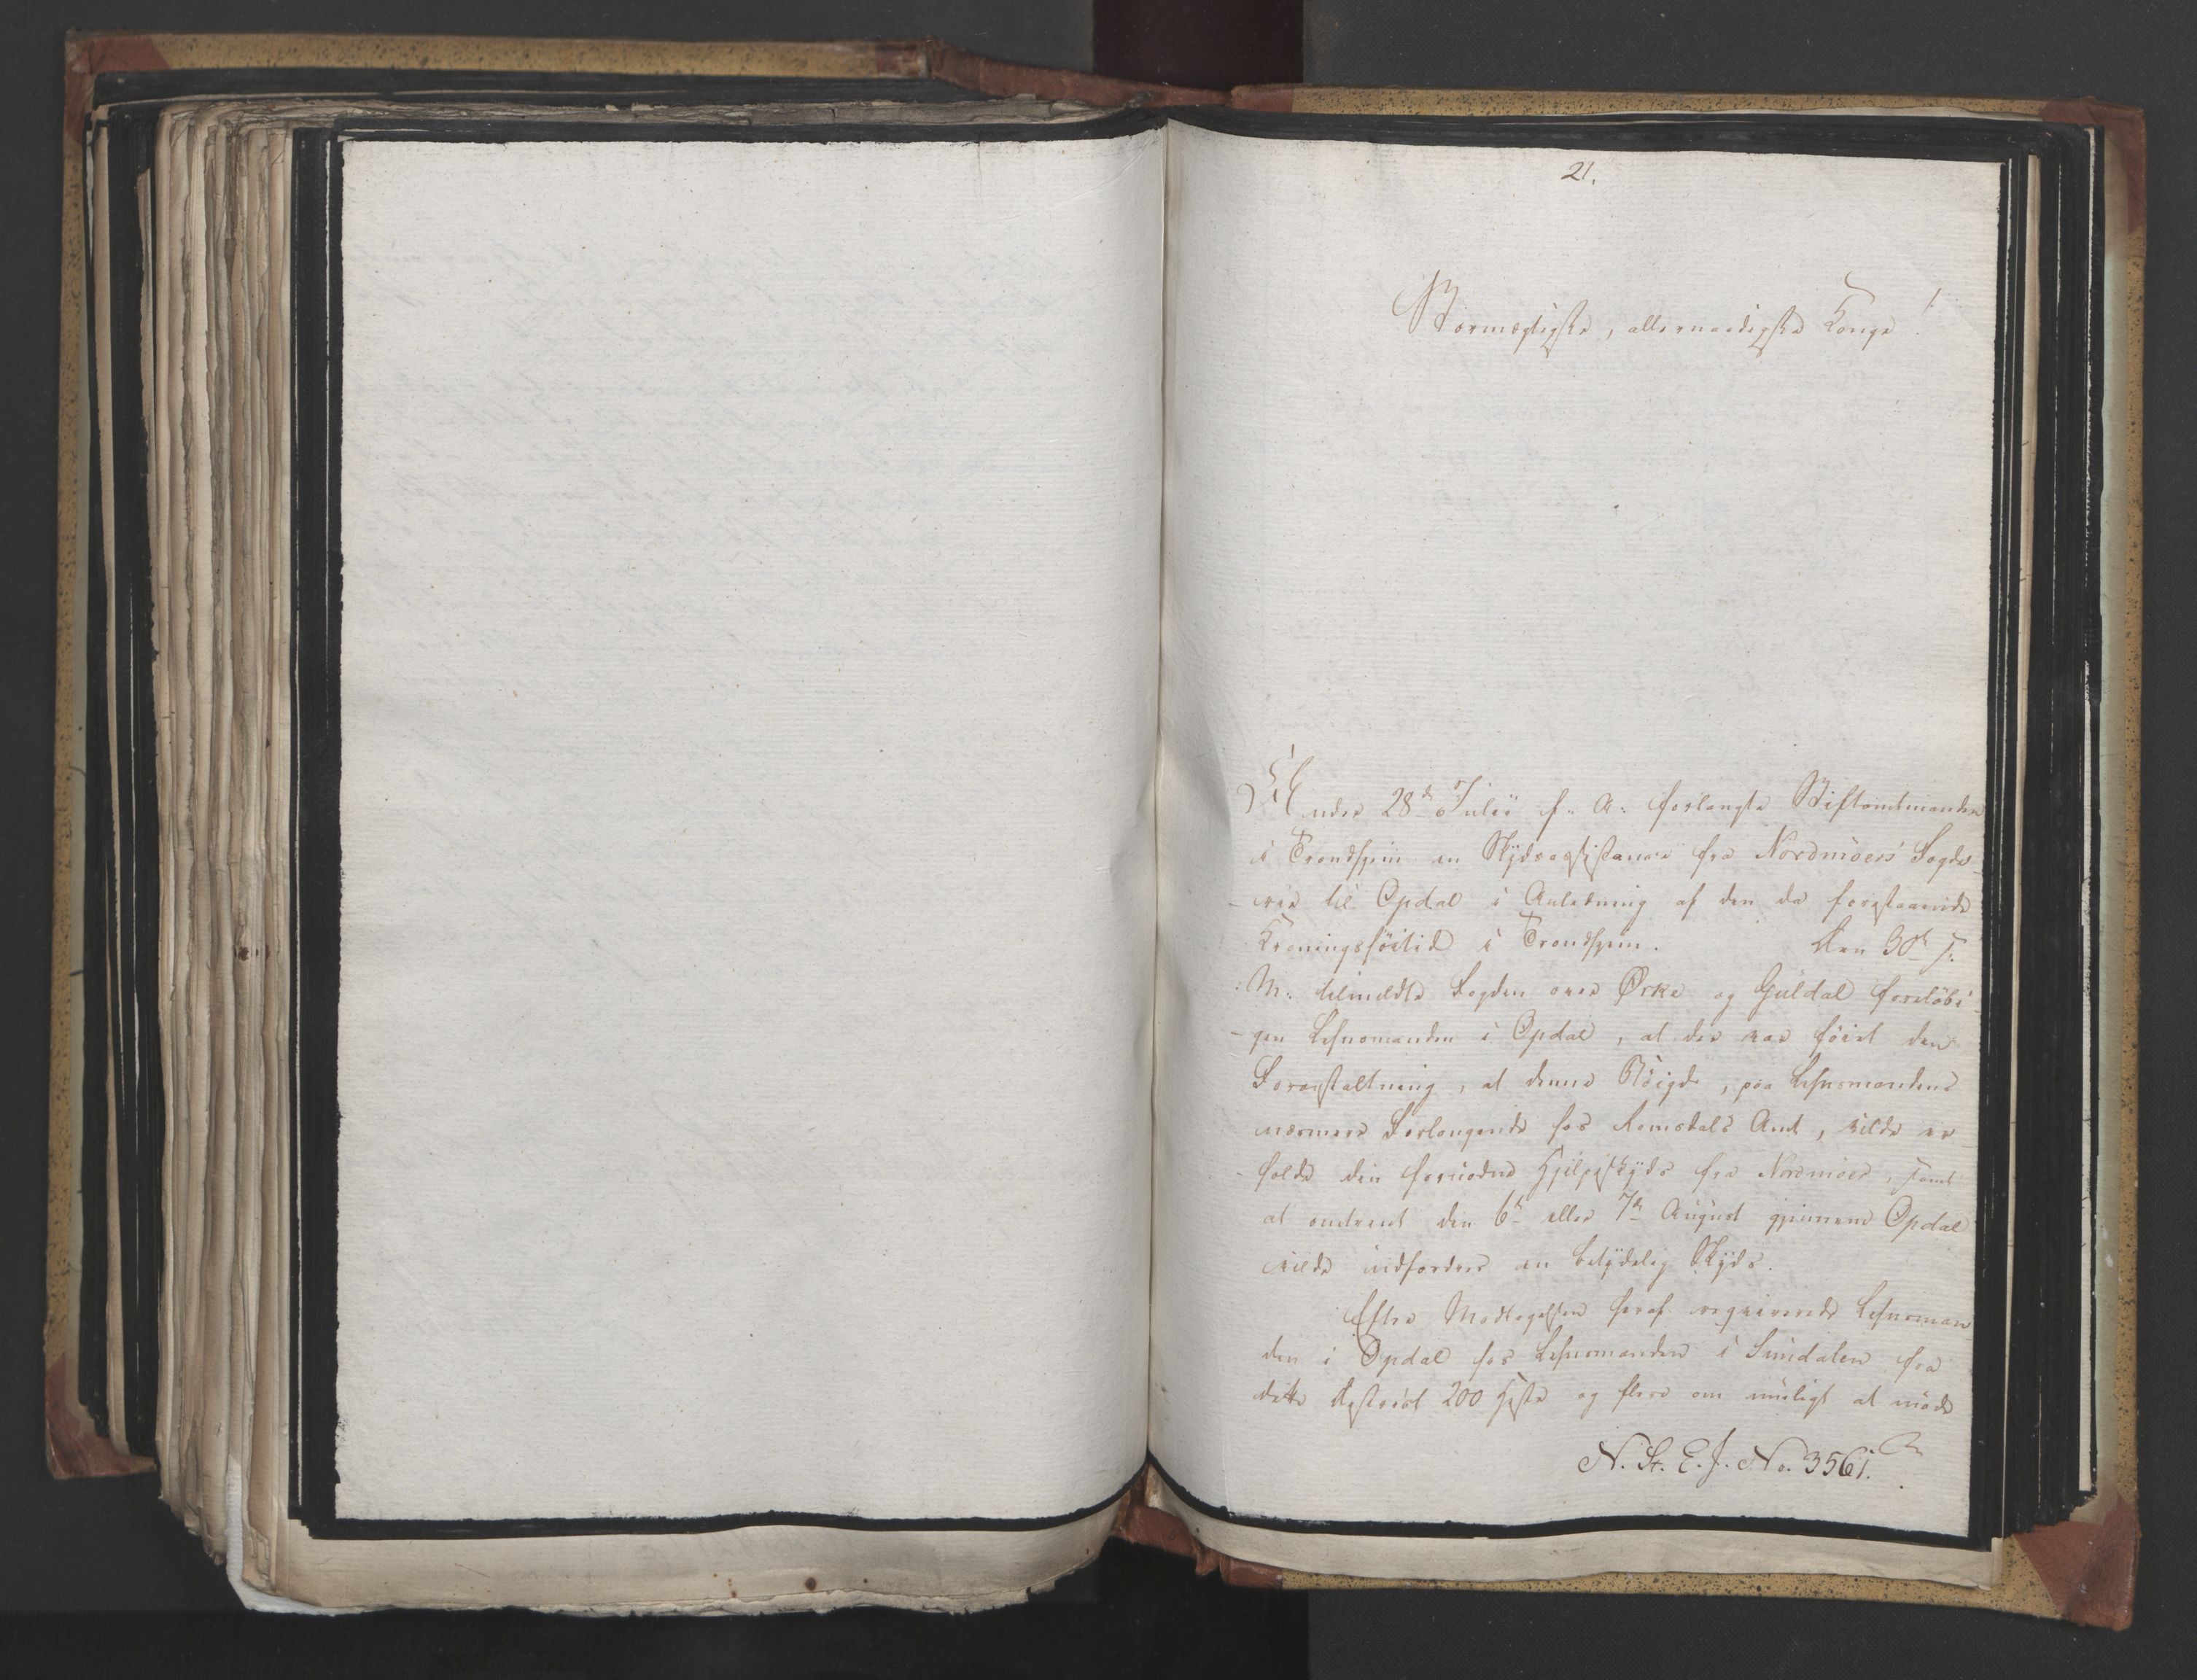 21.
Stormægtigste, allernaadigste Konge!
Under 28de Julii f: A: forlangte Stiftamtmanden
i Trondhjem en Skydsassistance fra Nordmöers Fogde-
-rie til Opdal i Anledning af den da forestaaende
Kroningshöitid i Trondhjem. Den 30te s:
M: tilmeldte Fogden over Ørke og Guldal foreløbi-
-gen Lehnsmanden i Opdal, at der var föiet den
Foranstaltning, at denne Bÿigd, paa Lehnsmandens
nærmere Forlangende hos Romsdals Amt, vilde er-
-holde den fornödne Hjelpeskÿds fra Nordmöer, samt
at omtrent den 6te eller 7de August gjennem Opdal
vilde udfordres en betÿdelig Skÿds.
Efter Modtagelsen heraf reqvirerede Lehnsman
den i Opdal hos Lehnsmanden i Sundalen fra
dette Distrikt 200 Heste og flere om muligt at møde
N. St. E. J. No. 3561.